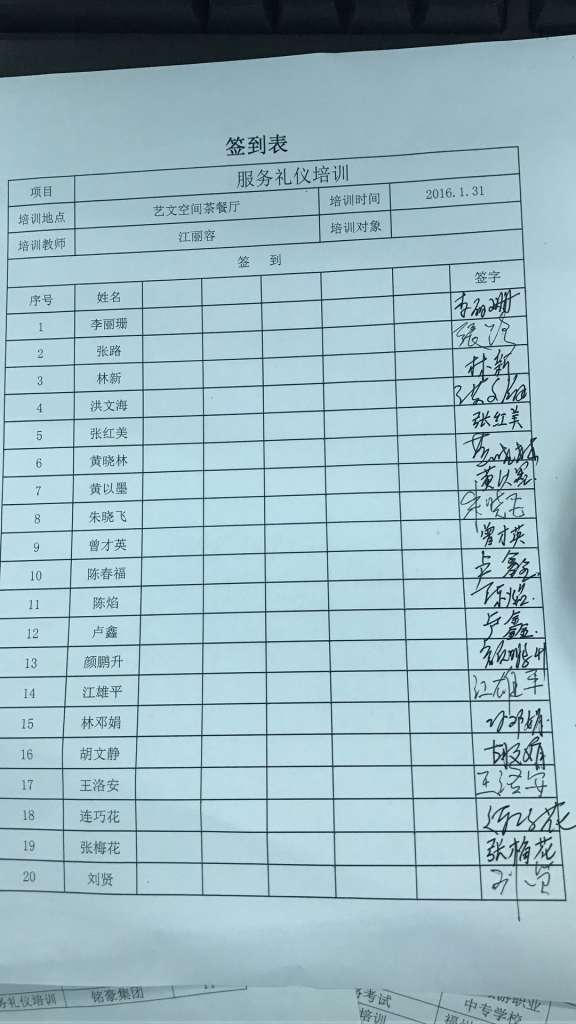 签到表
项目 服务礼仪培训
培训地点 艺文空间茶餐厅 培训时间 2016.1.31
培训教师 江丽容 培训对象
签 到
序号 姓名 签字
1 李丽珊 李丽珊
2 张路 张路
3 林新 林新
4 洪文海 洪文海
5 张红美 张红美
6 黄晓林 黄晓林
7 黄以墨 黄以墨
8 朱晓飞 朱晓飞
9 曾才英 曾才英
10 陈春福 卢鑫
11 陈焰 陈焰
12 卢鑫 卢鑫
13 颜鹏升 颜鹏升
14 江雄平 江雄平
15 林邓娟 林邓娟
16 胡文静
17 王洛安 王洛安
18 连巧花 连巧花
19 张梅花 张梅花
20 刘贤 刘贤
务礼仪培训 铭豪集团
考试 职业
培训 中专学校
福州